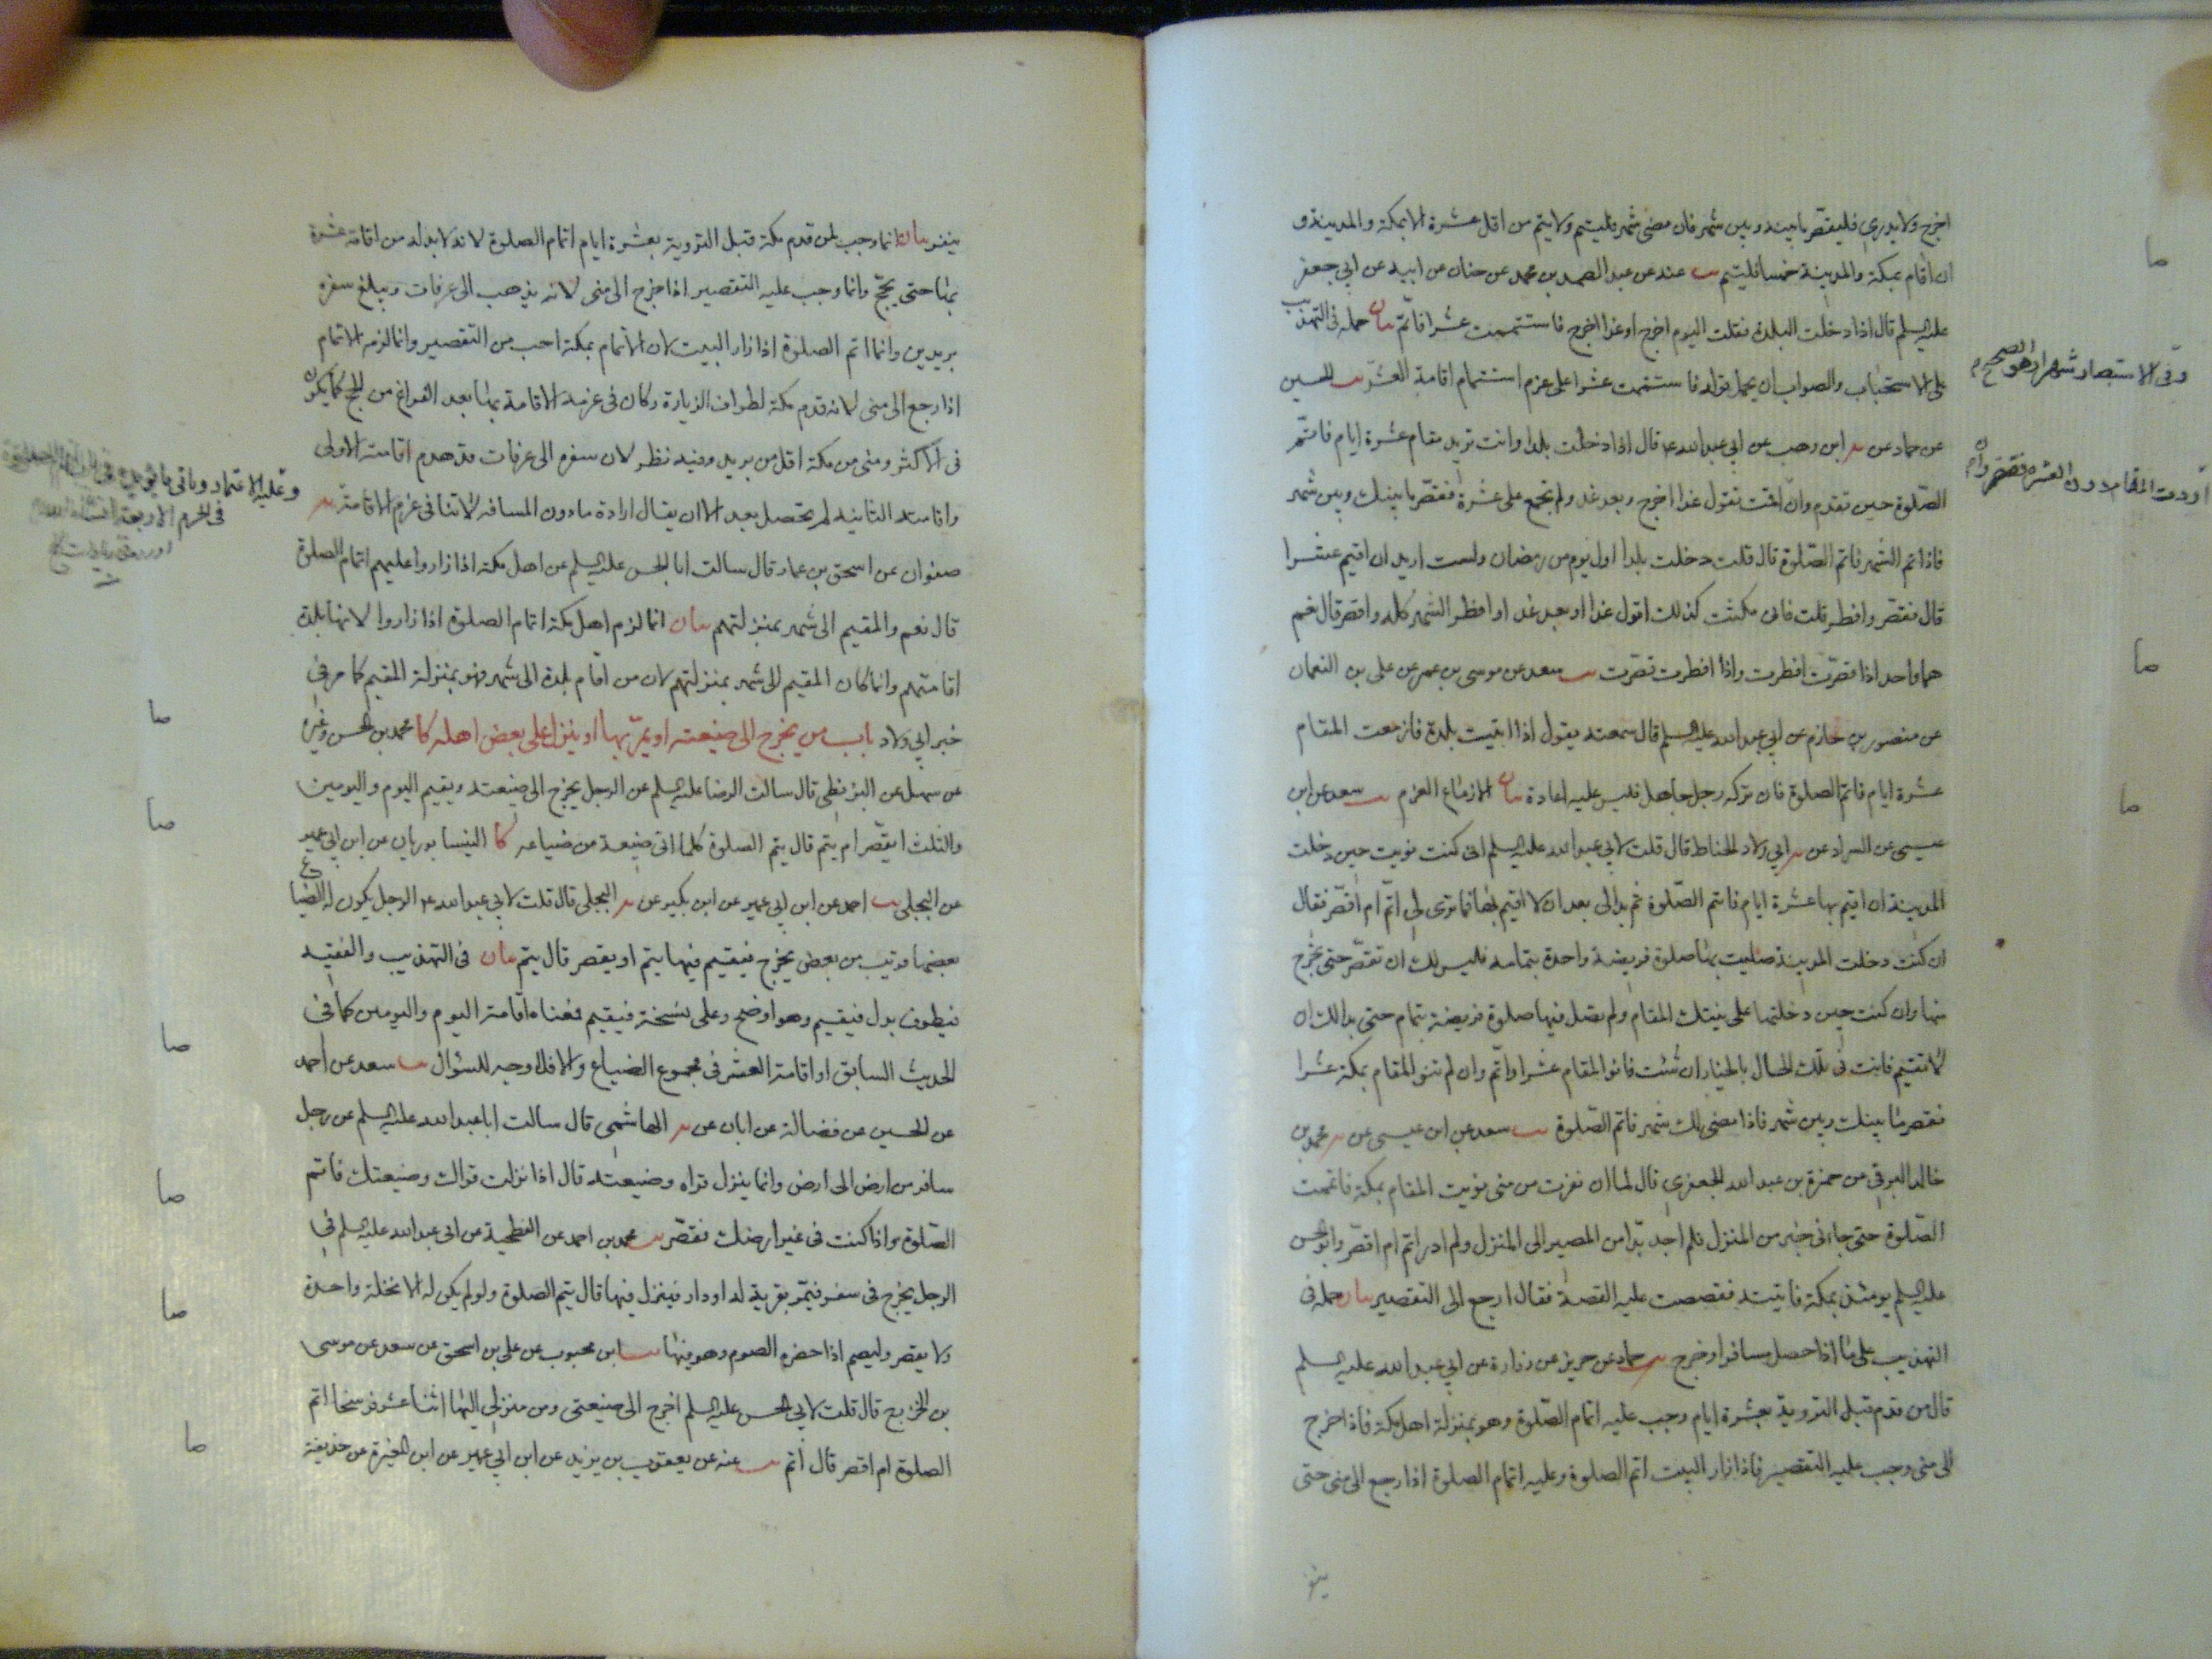 اخرج ولا يدري فليقصّر ما بينه وبين شهر فان مضى شهر فليتم ولا يتم من اقل عشرة الا بمكة والمدينة و
ان اقام بمكة والمدينة خمسا فليتم يب عنه عن عبد الصمد بن محمد عن حنان عن ابيه عن ابي جعفر
عليه السلم قال اذا دخلت البلدة فقلت اليوم اخرج او غدا اخرج فاستتممت عشرا فاتمّ بيان حمله في التهذيب
على الاستحباب والصواب ان يحمل قوله فاستتممت عشرا على عزم استتمام اقامة العشر يب الحسين
وفي الاستبصار شهرا وهو الصحيح م
عن حماد عن ابن وهب عن ابي عبد الله ع قال اذا دخلت بلدا وانت تريد مقام عشرة ايام فاتمّ
الصّلوة حين تقدم وان اقمت تقول غدا اخرج وبعد غد ولم تجمع على عشرة فقصّر ما بينك وبين شهر
اردت المقام دون العشرة فقصر وان
فاذا تم الشهر فاتم الصّلوة قال قلت دخلت بلدا اول يوم من رمضان ولست اريد ان اقيم عشرا
قال فقصّر وافطر قلت فاني مكثت كذلك اقول غدا او بعد غد او افطر الشهر كله واقصر قال نعم
هما واحد اذا قصّرت افطرت واذا افطرت قصّرت يب سعد عن موسى بن عمر عن على بن النعمان
عن منصور بن حازم عن ابي عبد الله عليه السلم قال سمعته يقول اذا اتيت بلدة فازمعت المقام
عشرة ايام فاتم الصلوة فان تركه رجل جاهل فليس عليه اعادة بيان الازماع العزم يب سعد عن ابن
عيسى عن السراد عن ابي ولاد الحناط قال قلت لابي عبد الله عليه السلم اني كنت نويت حين دخلت
المدينة ان اقيم بها عشرة ايام فاتم الصّلوة ثم بدا لي بعد ان لا اقيم بها فما ترى لي اتمّ ام اقصّر فقال
ان كنت دخلت المدينة صليت بها صلوة فريضة واحدة بتمام فليس لك ان تقصّر حتى تخرج
منها وان كنت حين دخلتها على نيتك المقام ولم تصل فيها صلوة فريضة بتمام حتى بدا لك ان
لا تقيم فانت في تلك الحال بالخيار ان شئت فانو المقام عشرا واتمّ وان لم تنو المقام بمكة عشرا
فقصر ما بينك وبين شهر فاذا مضى لك شهر فاتم الصّلوة يب سعد عن ابن عيسى عن محمد بن
خالد البرقي عن حمزة بن عبد الله الجعفري قال لما ان نفرت من منى نويت المقام بمكة فاتممت
الصّلوة حتى جاءني خبر من المنزل فلم اجد بدّا من المصير الى المنزل ولم ادر اتم ام اقصّر وابو الحسن
عليه السلم يومئذ بمكة فاتيته فقصصت عليه القصة فقال ارجع الى التقصير بيان حمله في
التهذيب على ما اذا حصل مسافرا وخرج يب حماد عن حريز عن زرارة عن ابي عبد الله عليه السلم
قال من قدم قبل التروية بعشرة ايام وجب عليه اتمام الصّلوة وهو بمنزلة اهل مكة فاذا خرج
الى منى وجب عليه التقصير فاذا زار البيت اتم الصلوة وعليه اتمام الصلوة اذا رجع الى منى حتى
ينفر
ينفر بيان انما وجب لمن قدم مكة قبل التروية بعشرة ايام اتمام الصلوة لانه لا بد له من اقامة عشرة
بها حتى يحج وانما وجب عليه التقصير اذا خرج الى منى لانه يذهب الى عرفات ويبلغ سفره
بريدين وانما اتم الصلوة اذا زار البيت لان الاتمام بمكة احب من التقصير وانما لزمه الاتمام
اذا رجع الى منى لانه قدم مكة لطواف الزيارة وكان في عزمه الاقامة بها بعد الفراغ من الحج كما يكون
في الاكثر ومنى من مكة اقل من بريد وفيه نظر لان سفره الى عرفات قد هدم اقامته الاولى
واقامته الثانية لم تحصل بعد الا ان يقال ارادة ما دون المسافة لا تنافي عزم الاقامة
وعليه الاعتماد وياتي ما يؤيده في
في الحرم الاربعة انشاء الله
صفوان عن اسحق بن عمار قال سالت ابا الحسن عليه السلم عن اهل مكة اذا زاروا عليهم اتمام الصلوة
قال نعم والمقيم الى شهر بمنزلتهم بيان انما لزم اهل مكة اتمام الصلوة اذا زاروا لانها بلدة
اقامتهم وانما كان المقيم الى شهر بمنزلتهم لان من اقام بلدة الى شهر فهو بمنزلة المقيم كما مر في
خبر ابي ولاد باب من يخرج الى ضيعته او يمرّ بها او ينزل على بعض اهله كا محمد بن الحسن وغيره
عن سهل عن البزنطي قال سالت الرضا عليه السلم عن الرجل يخرج الى ضيعته ويقيم اليوم واليومين
والثلث ايقصّر ام يتم قال يتم الصلوة كلما اتى ضيعة من ضياعه كا النيسابوريان عن ابن ابي عمير
عن البجلي يب احمد عن ابن ابي عمير عن ابن بكير عن البجلي قال قلت لابي عبد الله ع الرجل يكون له الضياع
بعضها قريب من بعض يخرج فيقيم فيها يتم او يقصر قال يتم بيان في التهذيب والفقيه
فيطوف بدل فيقيم وهو اوضح وعلى نسخة فيقيم فمعناه اقامة اليوم واليومين كما في
الحديث السابق او اقامة العشر في مجموع الضياع والا فلا وجه للسؤال يب سعد عن احمد
عن الحسين عن فضالة عن ابان عن الهاشمي قال سالت ابا عبد الله عليه السلم عن رجل
سافر من ارض الى ارض وانما ينزل قراه وضيعته قال اذا نزلت قراك وضيعتك فاتم
الصّلوة واذا كنت في غير ارضك فقصّر يب محمد بن احمد عن الفطحية عن ابي عبد الله عليه السلم في
الرجل يخرج في سفر فيمرّ بقرية له او دار فينزل فيها قال يتم الصلوة ولو لم يكن له الا نخلة واحدة
ولا يقصر وليصم اذا حضره الصوم وهو فيها يب ابن محبوب عن على بن اسحق عن سعد عن موسى
بن الخزرج قال قلت لابي الحسن عليه السلم اخرج الى ضيعتي ومن منزلي اليها اثنا عشر فرسخا اتم
الصلوة ام اقصر قال اتم يب عنه عن يعقوب بن يزيد عن ابن ابي عمير عن ابن المغيرة عن حذيفة